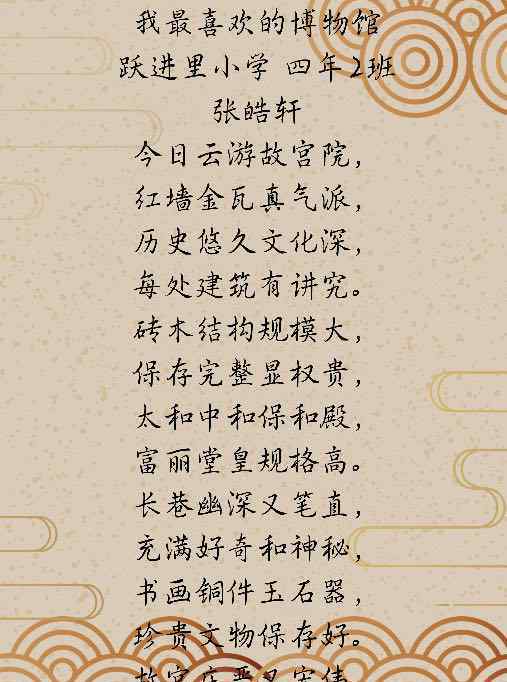 我最喜欢的博物馆
跃进里小学 四年2班
张皓轩
今日云游故宫院，
红墙金瓦真气派，
历史悠久文化深，
每处建筑有讲究。
砖木结构规模大，
保存完整显权贵，
太和中和保和殿，
富丽堂皇规格高。
长巷幽深又笔直，
充满好奇和神秘，
书画铜件玉石器，
珍贵文物保存好。
故宫庄严又宏伟